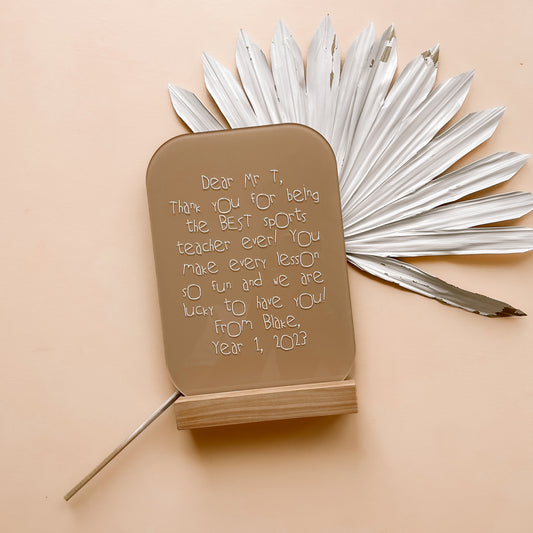 Dear Mr T,
Thank you for being
the BEST sports
teacher ever! You
make every lesson
so fun and we are
lucky to have you!
From Blake,
Year 1, 2023